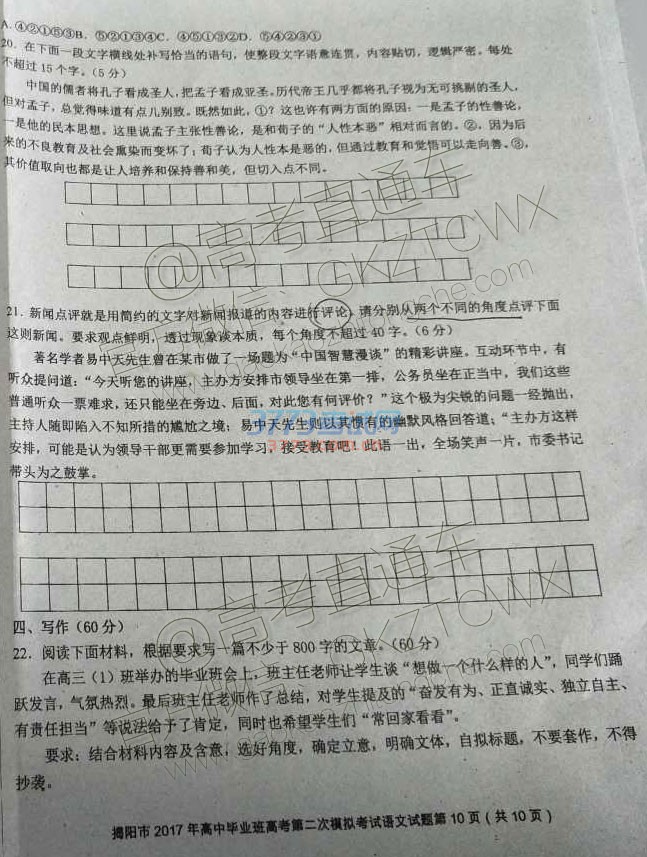 A.④②①⑤③B.⑤②①③④C.④⑤①③②D.⑤④②③①
20．在下面一段文字横线处补写恰当的语句，使整段文字语意连贯，内容贴切，逻辑严密。每处
不超过 15 个字。（5 分）
中国的儒者将孔子看成圣人，把孟子看成亚圣。历代帝王几乎都将孔子视为无可挑剔的圣人，
但对孟子，总觉得味道有点儿别致。既然如此，①？这也许有两方面的原因：一是孟子的性善论，
一是他的民本思想。这里说孟子主张性善论，是和荀子的“人性本恶”相对而言的。②，因为后
来的不良教育及社会熏染而变坏了；荀子认为人性本是恶的，但通过教育和觉悟可以走向善。③，
其价值取向也都是让人培养和保持善和美，但切入点不同。
21．新闻点评就是用简约的文字对新闻报道的内容进行评论，请分别从两个不同的角度点评下面
这则新闻。要求观点鲜明，透过现象谈本质，每个角度不超过 40 字。（6 分）
著名学者易中天先生曾在某市做了一场题为“中国智慧漫谈”的精彩讲座。互动环节中，有
听众提问道：“今天听您的讲座，主办方安排市领导坐在第一排，公务员坐在正当中，我们这些
普通听众一票难求，还只能坐在旁边、后面，对此您有何评价？”这个极为尖锐的问题一经抛出，
主持人随即陷入不知所措的尴尬之境；易中天先生则以其惯有的幽默风格回答道：“主办方这样
安排，可能是认为领导干部更需要参加学习，接受教育吧！此语一出，全场笑声一片，市委书记
带头为之鼓掌。
四、写作（60 分）
22．阅读下面材料，根据要求写一篇不少于 800 字的文章。（60 分）
在高三（1）班举办的毕业班会上，班主任老师让学生谈“想做一个什么样的人”，同学们踊
跃发言，气氛热烈。最后班主任老师作了总结，对学生提及的“奋发有为、正直诚实、独立自主、
有责任担当”等说法给予了肯定，同时也希望学生们“常回家看看”。
要求：结合材料内容及含意，选好角度，确定立意，明确文体，自拟标题，不要套作，不得
抄袭。
揭阳市 2017 年高中毕业班高考第二次模拟考试语文试题第 10 页（共 10 页）
@高考直通车
GKZTCWX
3773考试网
@高考直通车
GKZTCWX